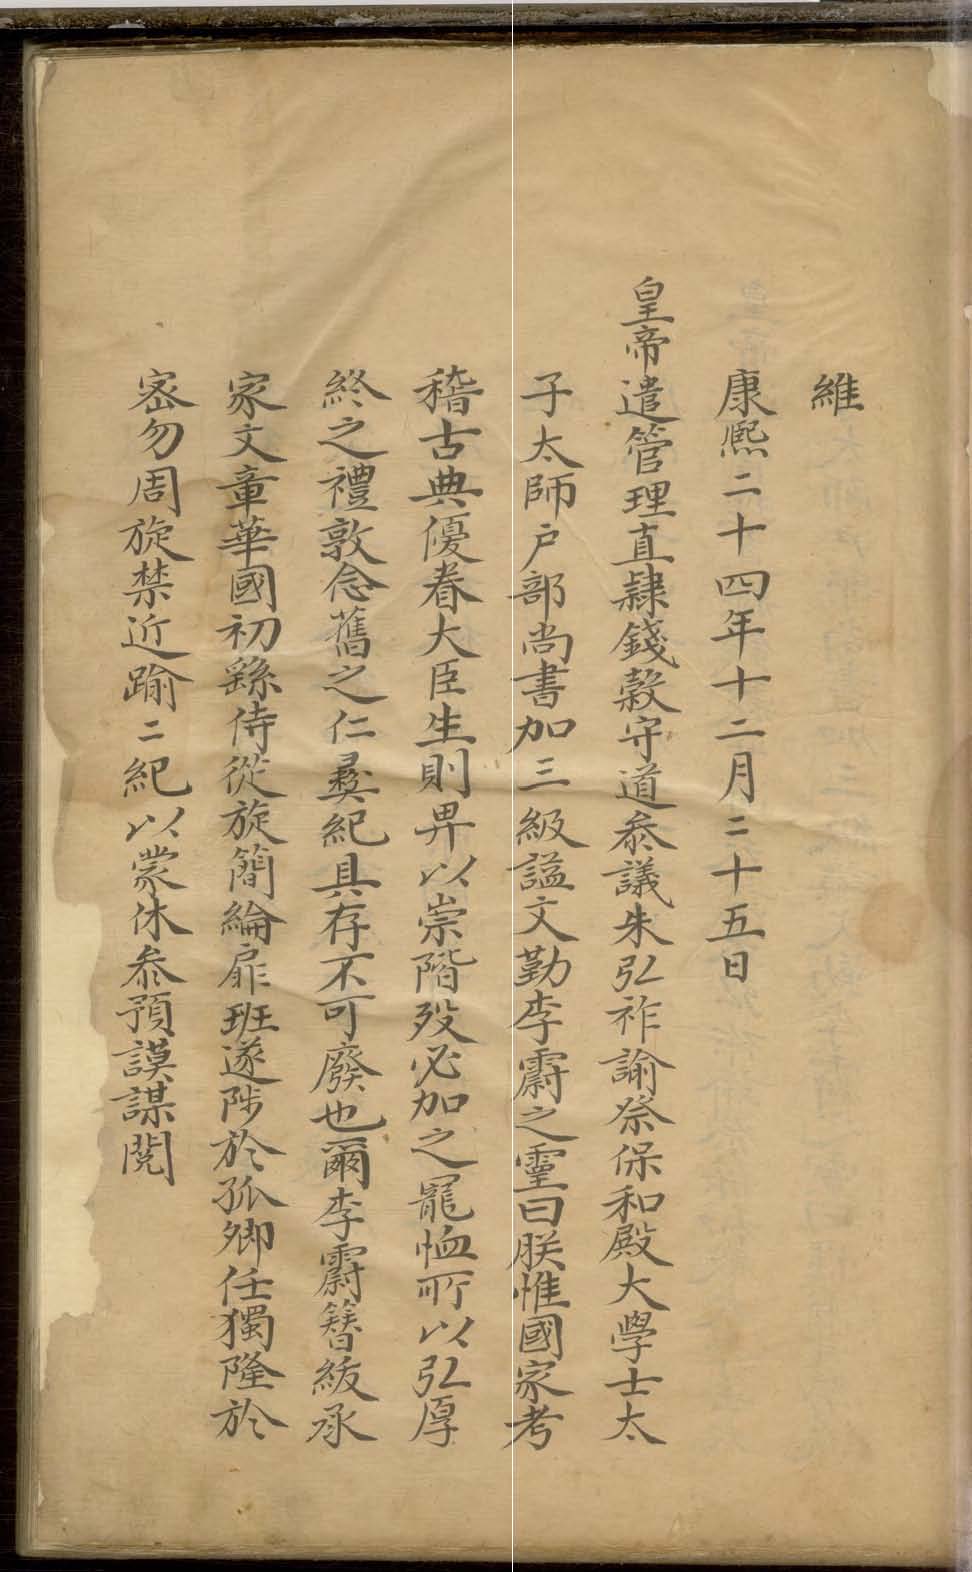 維
康熙二十四年十二月二十五日
皇帝遣管理直隸錢穀守道叅議朱弘祚諭祭保和殿大學士太
子太師戶部尚書加三級謚文勤李霨之靈曰朕惟國家考
稽古典優眷大臣生則畀以崇階歿必加之寵恤所以弘厚
終之禮敦念舊之仁彝紀具存不可廢也爾李霨簪紱承
家文章華國初繇侍從旋簡綸扉班遂陟於孤卿任獨隆於
密勿周旋禁近踰二紀以蒙休叅預謨謀閱